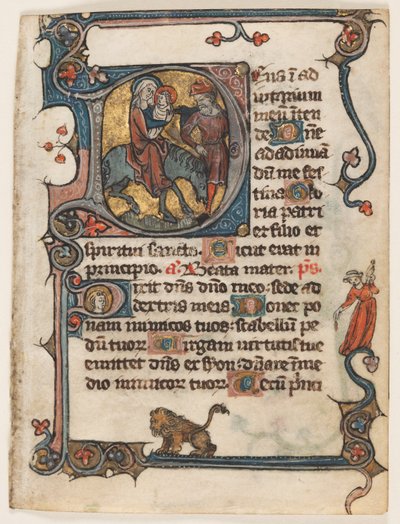 Deus ī ad
iutorium
meū inten
de Dn̄e
ad adiuuā
dū me fes
tina Glo
ria patri
et filio et
spiritui sancto. Sicut erat in
principio. a. Beata mater. p̄s.
Dixit dn̄s dn̄o meo. sede ad
dextris meis Donec po
nam inimicos tuos: scabellum pe
dum tuor Virgam virtutis tue
emittet dn̄s ex syon: dn̄are ī me
dio inimicor tuor Tecū prīci